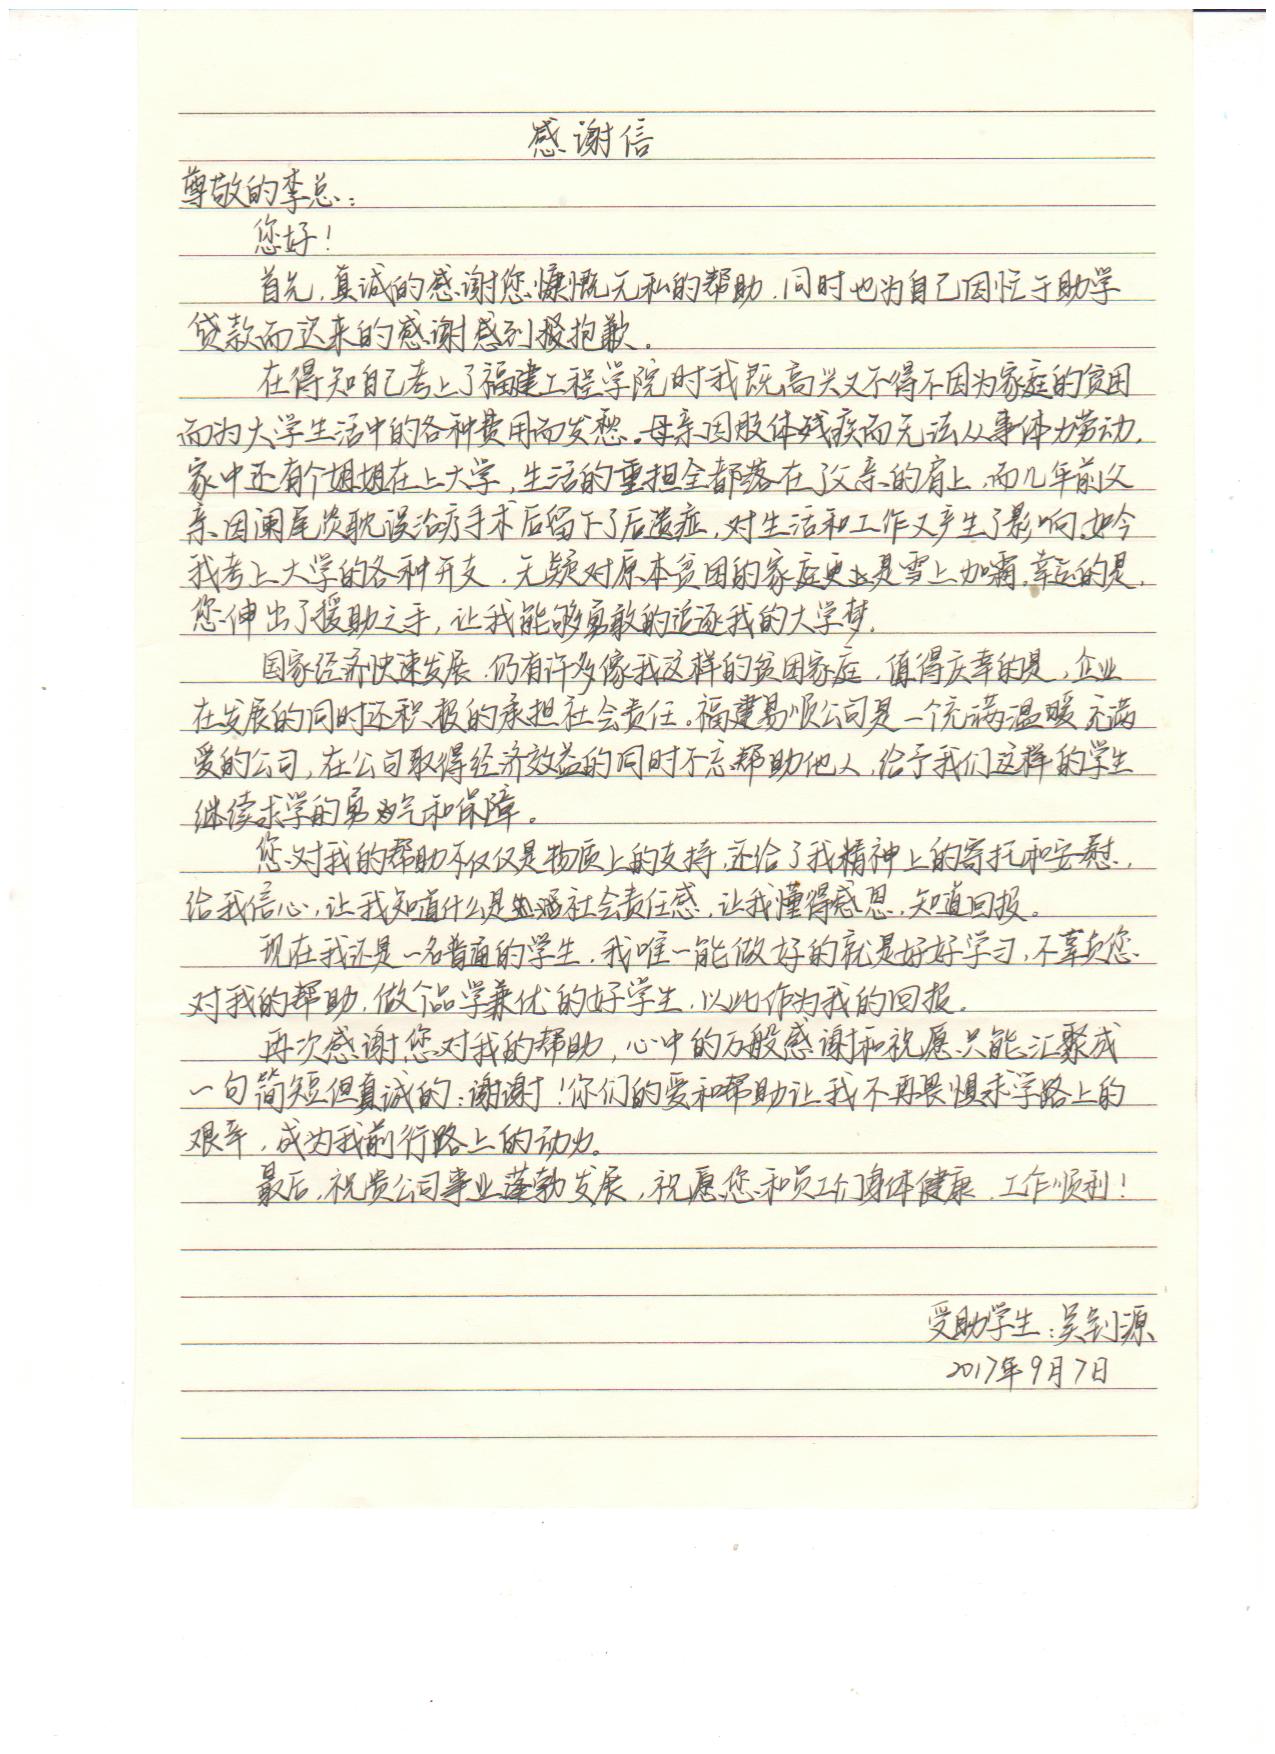 感谢信
尊敬的李总：
您好！
首先，真诚的感谢您慷慨无私的帮助，同时也为自己因忙于助学
贷款而迟来的感谢感到报抱歉。
在得知自己考上了福建工程学院时我既高兴又不得不因为家庭的贫困
而为大学生活中的各种费用而发愁。母亲因肢体残疾而无法从事体力劳动，
家中还有个姐姐在上大学，生活的重担全都落在了父亲的肩上，而几年前父
亲因阑尾炎耽误治疗手术后留下了后遗症，对生活和工作又产生了影响。如今
我考上大学的各种开支，无疑对原本贫困的家庭更是雪上加霜。幸运的是，
您伸出了援助之手，让我能够勇敢的追逐我的大学梦。
国家经济快速发展，仍有许多像我这样的贫困家庭，值得庆幸的是，企业
在发展的同时还积极的承担社会责任。福建易顺公司是一个充满温暖充满
爱的公司，在公司取得经济效益的同时不忘帮助他人，给予我们这样的学生
继续求学的勇气和保障。
您对我的帮助不仅仅是物质上的支持，还给了我精神上的寄托和安慰，
给我信心，让我知道什么是社会责任感，让我懂得感恩，知道回报。
现在我还是一名普通的学生，我唯一能做好的就是好好学习，不辜负您
对我的帮助，做个品学兼优的好学生，以此作为我的回报。
再次感谢您对我的帮助，心中的万般感谢和祝愿只能汇聚成
一句简短但真诚的：谢谢！你们的爱和帮助让我不再畏惧求学路上的
艰辛，成为我前行路上的动力。
最后，祝贵公司事业蓬勃发展，祝愿您和员工们身体健康，工作顺利！
受助学生：吴钊源
2017年9月7日